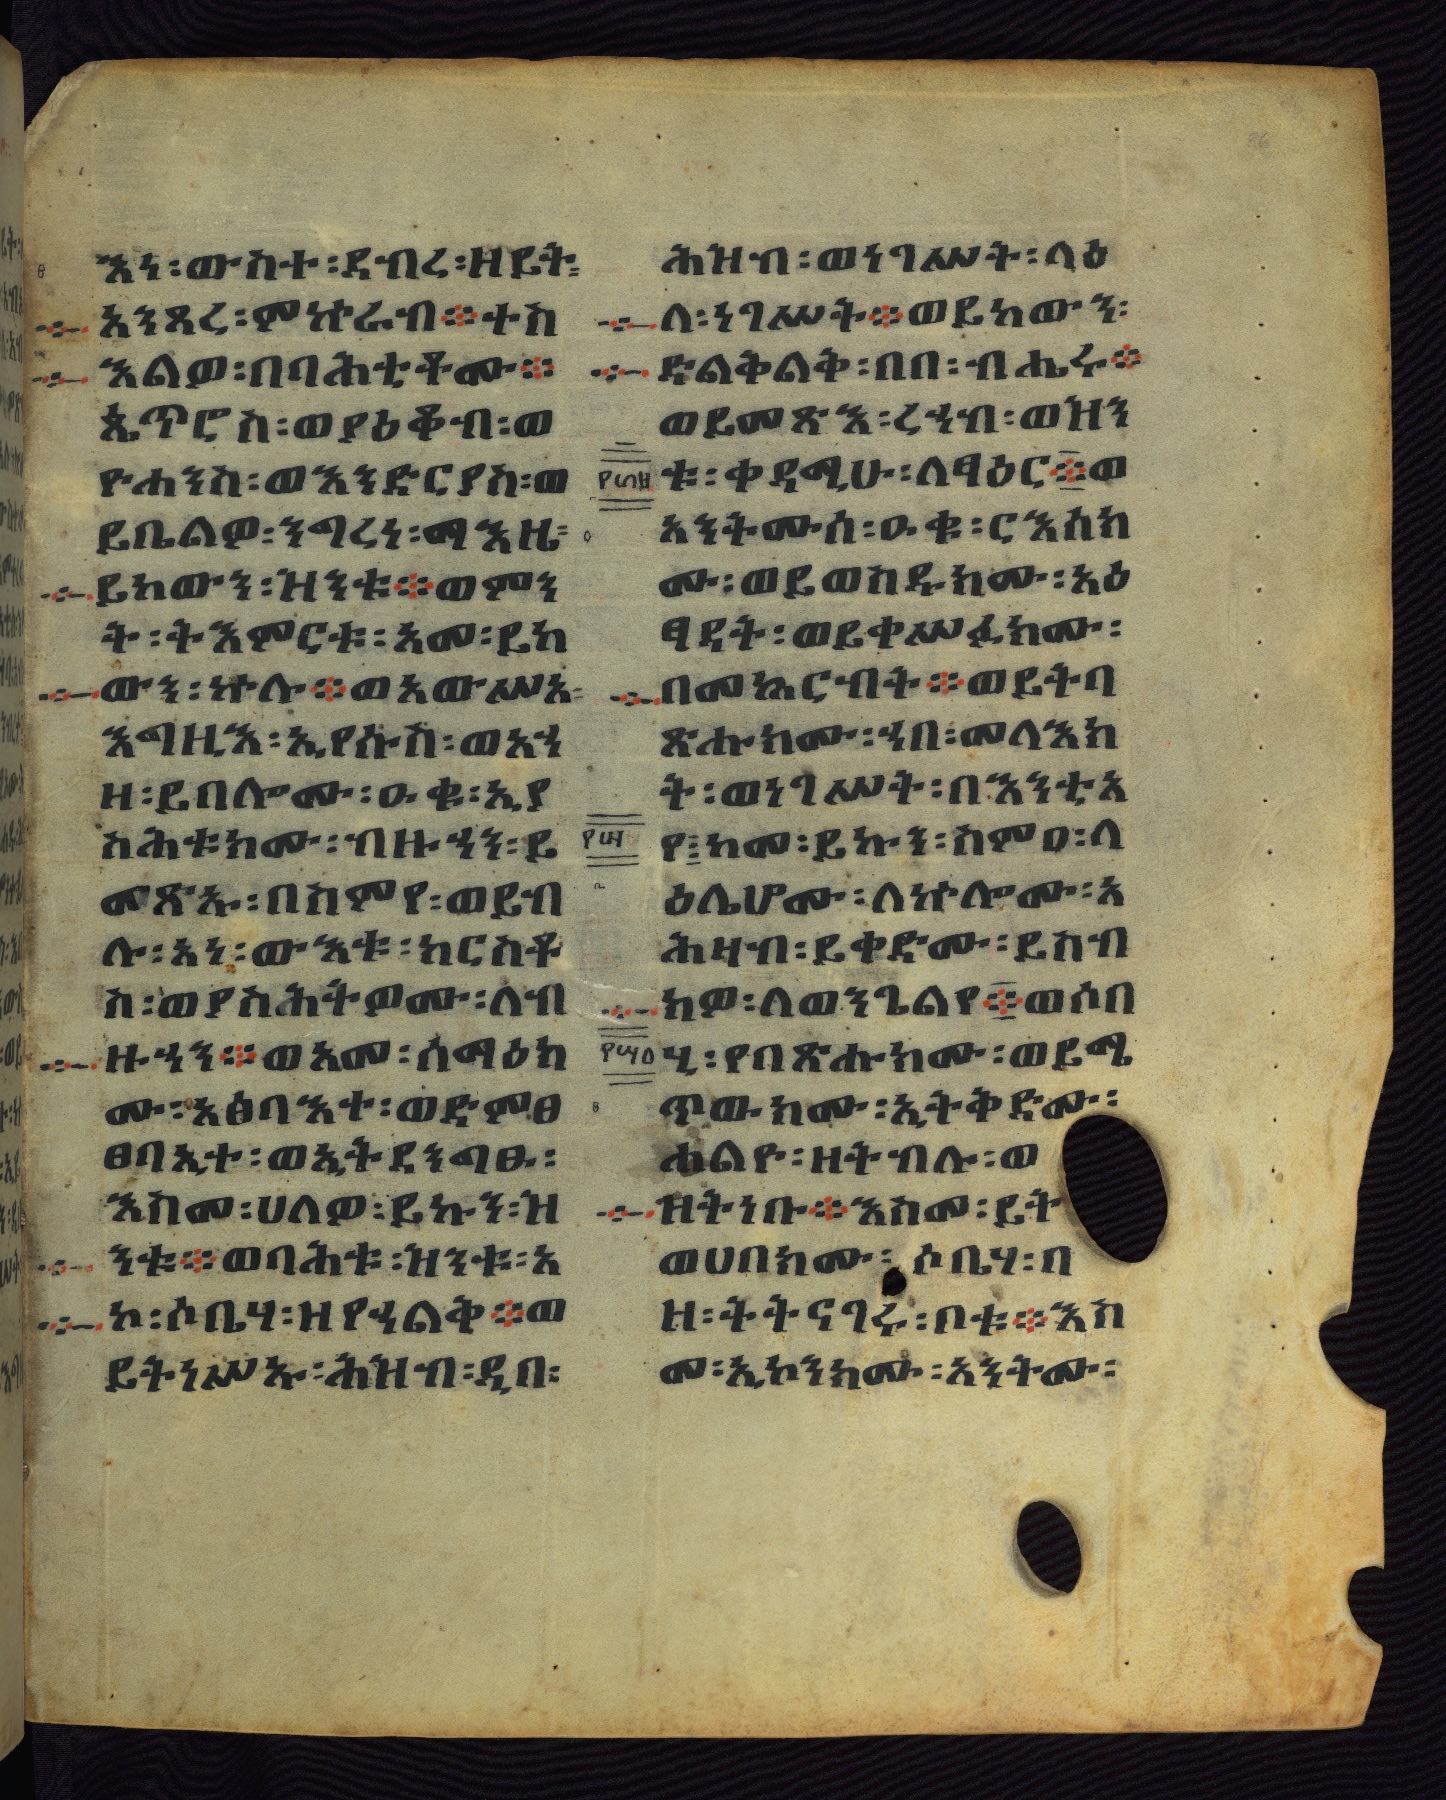 እነ፡ውስተ፡ደብረ፡ዘይት፡
አንጻረ፡ምኵራብ፨ተስ
እልዎ፡በባሕቲቶሙ፨
ጴጥሮስ፡ወያዕቆብ፡ወ
ዮሐንስ፡ወእንድርያስ፡ወ
ይቤልዎ፡ንግረነ፡ማእዜ፡
ይከውን፡ዝንቱ፨ወምን
ት፡ትእምርቱ፡አመ፡ይከ
ውን፡ኵሉ፨ወአውሥአ፡
እግዚእ፡ኢየሱስ፡ወአኀ
ዘ፡ይበሎሙ፡ዑቁ፡ኢያ
ስሕቱክሙ፡ብዙኀን፡ይ
መጽኡ፡በስምየ፡ወይብ
ሉ፡አነ፡ውእቱ፡ክርስቶ
ስ፡ወያስሕትዎሙ፡ለብ
ዙኀን፨ወአመ፡ሰማዕክ
ሙ፡አፅባእተ፡ወድምፀ
ፀባኢተ፡ወኢትደንግፁ፡
እስመ፡ሀለዎ፡ይኩን፡ዝ
ንቱ፨ወባሕቱ፡ዝንቱ፡አ
ኮ፡ሶቤሃ፡ዘየኀልቅ፨ወ
ይትነሥኡ፡ሕዝብ፡ዲበ፡
ሕዝብ፡ወነገሥት፡ላዕ
ለ፡ነገሥት፨ወይከውን፡
ድልቅልቅ፡በበ፡ብሔሩ፨
ወይመጽእ፡ረኀብ፡ወዝን
ቱ፡ቀዳሚሁ፡ለፃዕር፨ወ
አንትሙሰ፡ዑቁ፡ርእስክ
ሙ፡ወይወስዱክሙ፡አዕ
ፃዳት፡ወይቀሥፉክሙ፡
በመኳርብት፨ወይትባ
ጽሑክሙ፡ኀበ፡መላእክ
ት፡ወነገሥት፡በእንቲአ
የ፡ከመ፡ይኩን፡ስምዐ፡ላ
ዕሌሆሙ፡ለኵሎሙ፡አ
ሕዛብ፡ይቀድሙ፡ይስብ
ክዎ፡ለወንጌልየ፨ወሶበ
ሂ፡የባጽሑክሙ፡ወይሜ
ጥውክሙ፡ኢትቅድሙ፡
ሐልዮ፡ዘትብሉ፡ወ
ዘትነቡ፨እስመ፡ይት
ወሀበክሙ፡ሶቤሃ፡በ
ዘ፡ትትናገሩ፡ቦቱ፨እስ
መ፡ኢኮንክሙ፡አንትሙ፡